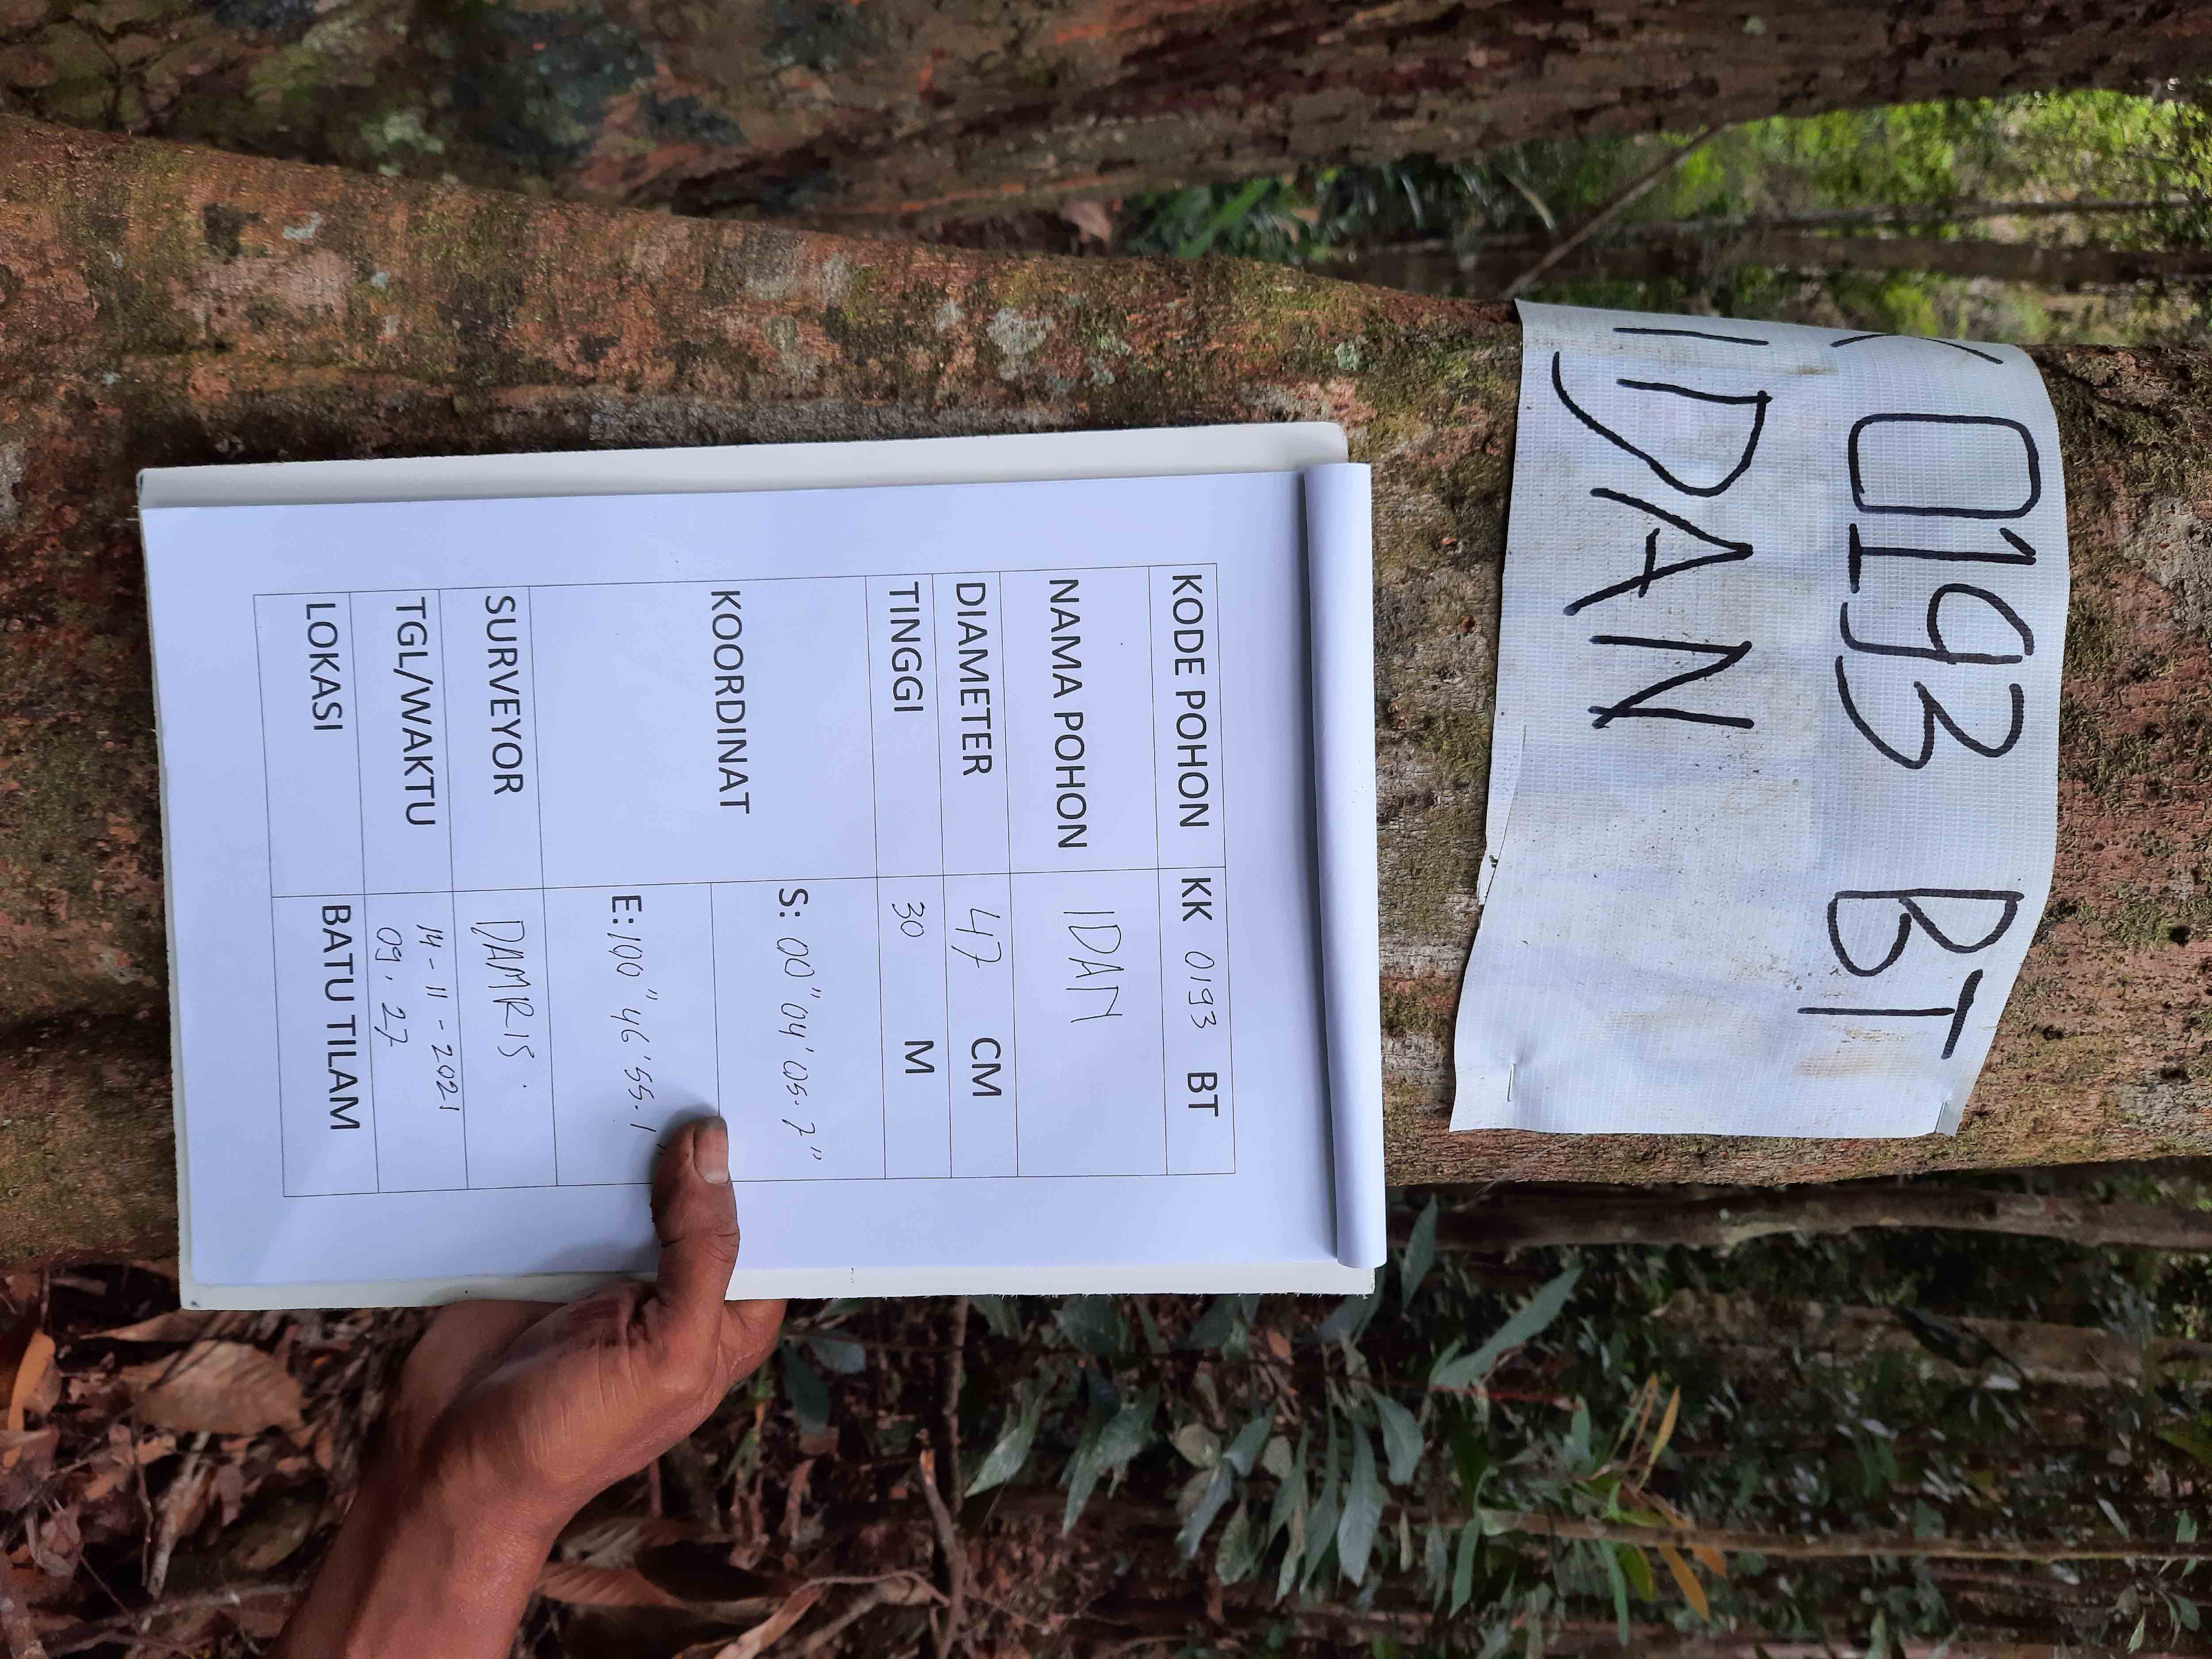 0193 BT
IDAN
KODE POHON KK 0193 BT
NAMA POHON IDAN
DIAMETER 47 CM
TINGGI 30 M
KOORDINAT S: 00" 04' 05.7"
E: 100" 46' 55.1"
SURVEYOR DAMRIS.
TGL/WAKTU 14-11-2021
09.27
LOKASI BATU TILAM